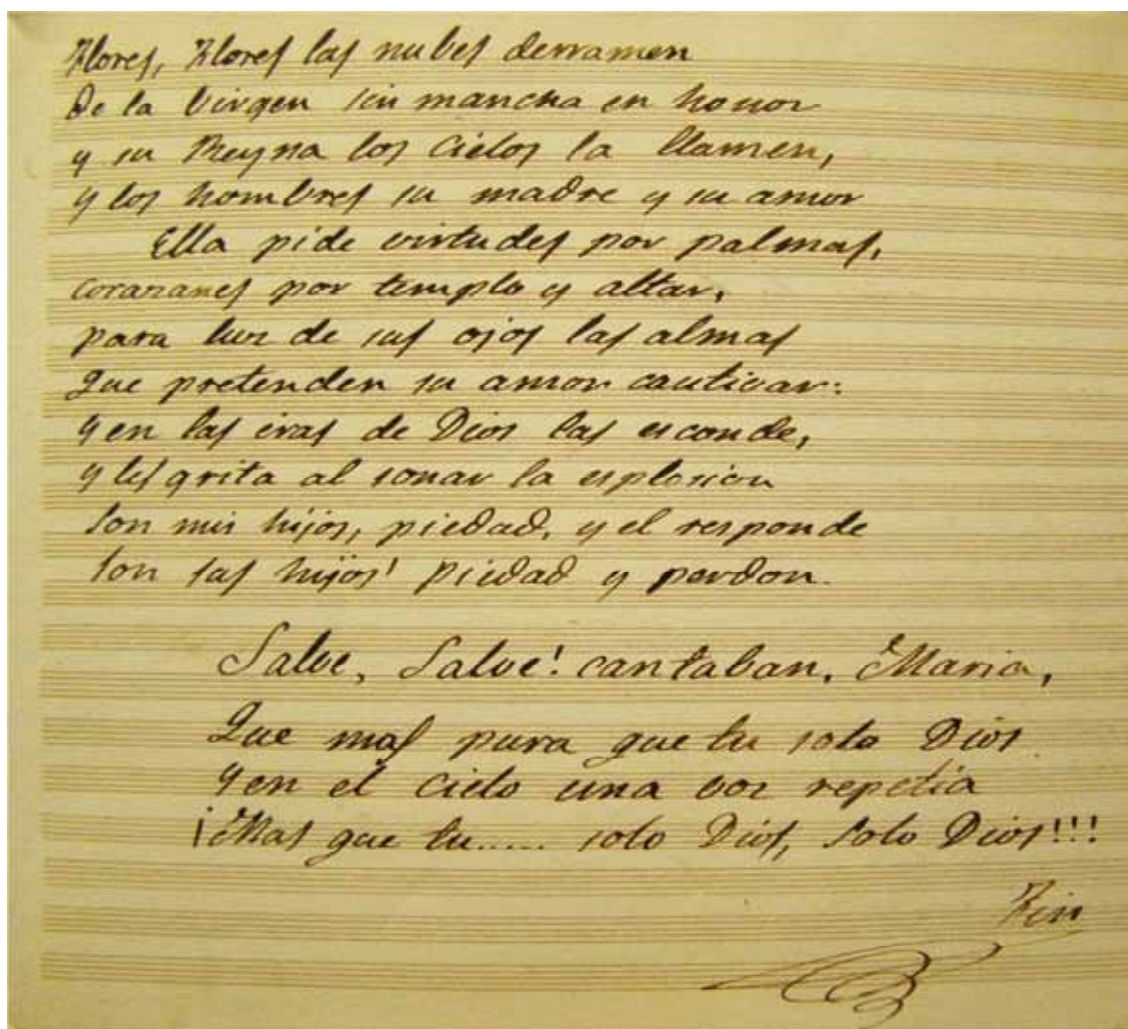 Flores, Flores las nubes derramen
De la Virgen sin mancha en honor
y su Reyna los Cielos la llamen,
y los hombres su madre y su amor
Ella pide virtudes por palmas,
corazanes por templo y altar,
para luz de sus ojos las almas
Que pretenden su amor cautivar:
y en las iras de Dios las esconde,
y les grita al sonar la esplosion
Son mis hijos, piedad, y el responde
Son sus hijos! Piedad y perdon.
Salve, Salve! cantaban, Maria,
Que mas pura que tu solo Dios
y en el Cielo una voz repetia
¡Mas que tu..... solo Dios, Solo Dios!!!
Fin